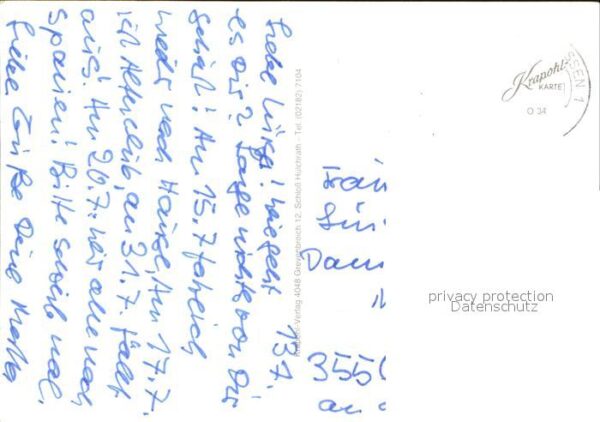 13.7.
Liebe Luise! Wie geht
es Dir? Lange nichts von Dir
gehört! Am 15.7 fahre ich
wieder nach Hause, Am 17.7.
ich
aus! Am 20.7. wir alle nach
Spanien! Bitte schreib mal.
Liebe Grüße Deine
Krapohl-Verlag 4048 Grevenbroich 12, Schloß Hülchrath · Tel. (02182) 7104
Krapohl
KARTE
O 34
SEN 1
Fräu
Dam
355
an d
privacy protection
Datenschutz